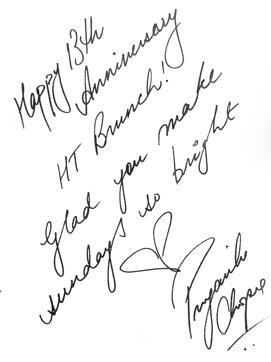 Happy 13th
Anniversary
HT Brunch!
Glad you make
sundays so bright
Priyanka
Chopra